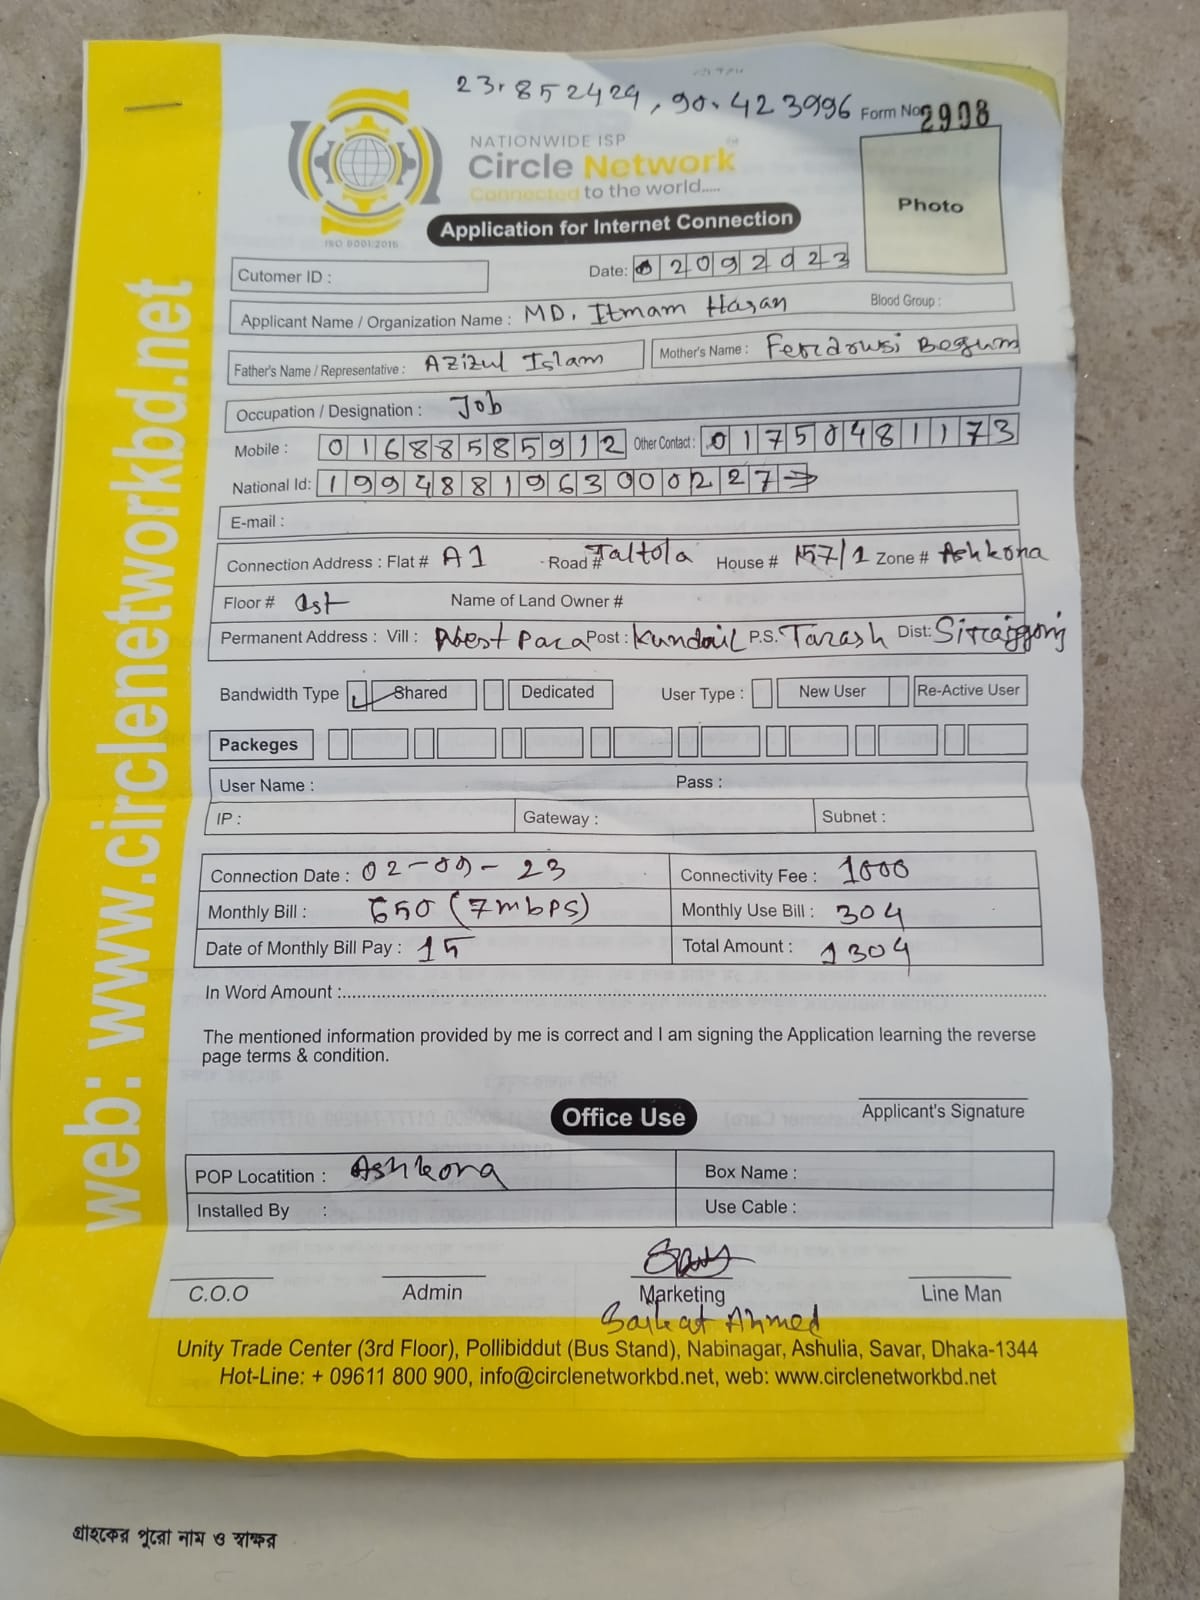 23.852429, 90.423996
Form No: 2908
NATIONWIDE ISP
Circle Network
Connected to the world.....
ISO 9001:2015
Application for Internet Connection
Photo
Cutomer ID :
Date: 02092023
Applicant Name / Organization Name : MD. Itmam Hasan Blood Group :
Father's Name / Representative : Azizul Islam Mother's Name : Ferdowsi Begum
Occupation / Designation : Job
Mobile : 01688585912 Other Contact : 01750481173
National Id: 19948819630000227
E-mail :
Connection Address : Flat # A1 Road # Taltola House # 157/1 Zone # Ashkona
Floor # 1st Name of Land Owner #
Permanent Address : Vill : West Para Post : Kundail P.S. Tarash Dist: Sirajgonj
Bandwidth Type Shared Dedicated User Type : New User Re-Active User
Packeges
User Name : Pass :
IP : Gateway : Subnet :
Connection Date : 02-09-23 Connectivity Fee : 1000
Monthly Bill : 650 (7mbps) Monthly Use Bill : 304
Date of Monthly Bill Pay : 15 Total Amount : 1304
In Word Amount :
The mentioned information provided by me is correct and I am signing the Application learning the reverse
page terms & condition.
Applicant's Signature
Office Use
POP Locatition : Ashkona Box Name :
Installed By : Use Cable :
C.O.O Admin Marketing Line Man
Saikat Ahmed
Unity Trade Center (3rd Floor), Pollibiddut (Bus Stand), Nabinagar, Ashulia, Savar, Dhaka-1344
Hot-Line: + 09611 800 900, info@circlenetworkbd.net, web: www.circlenetworkbd.net
web: www.circlenetworkbd.net
গ্রাহকের পুরো নাম ও স্বাক্ষর